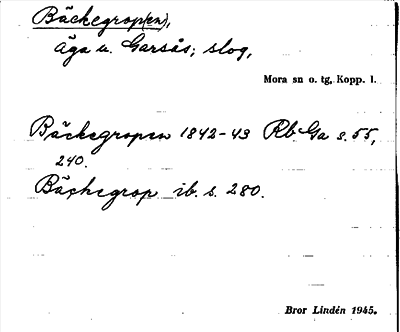 Bäckegrop(en),
äga u. Garsås; slog,
Mora sn o. tg, Kopp. l.
Bäckegropen 1842-43 Rb. Ga s. 55,
240.
Bäckegrop ib. s. 280.
Bror Lindén 1945.